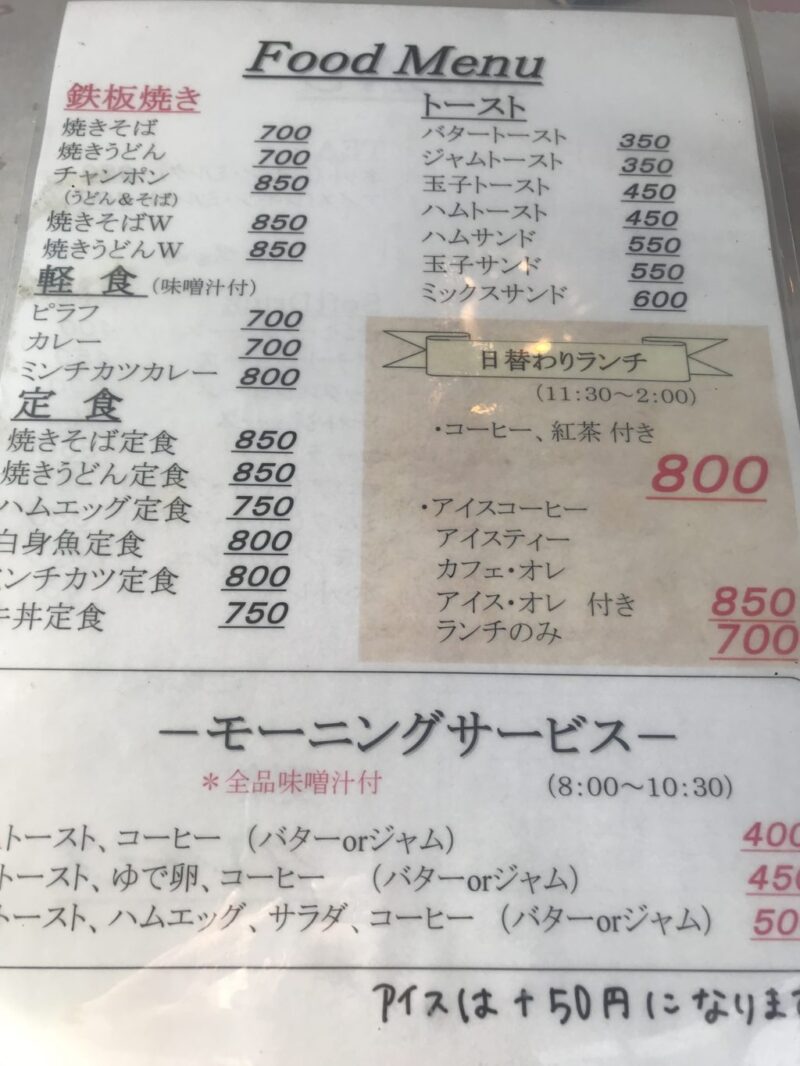 Food Menu
鉄板焼き
焼きそば 700
焼きうどん 700
チャンポン 850
(うどん＆そば)
焼きそばW 850
焼きうどんW 850
軽 食 (味噌汁付)
ピラフ 700
カレー 700
ミンチカツカレー 800
定 食
焼きそば定食 850
焼きうどん定食 850
ハムエッグ定食 750
白身魚定食 800
ンチカツ定食 800
丼定食 750
トースト
バタートースト 350
ジャムトースト 350
玉子トースト 450
ハムトースト 450
ハムサンド 550
玉子サンド 550
ミックスサンド 600
日替わりランチ
(11:30～2:00)
・コーヒー、紅茶 付き
800
・アイスコーヒー
アイスティー
カフェ・オレ
アイス・オレ 付き 850
ランチのみ 700
－モーニングサービス－
＊全品味噌汁付 (8:00～10:30)
トースト、コーヒー (バターorジャム) 400
トースト、ゆで卵、コーヒー (バターorジャム) 450
トースト、ハムエッグ、サラダ、コーヒー (バターorジャム) 50
アイスは+50円になります